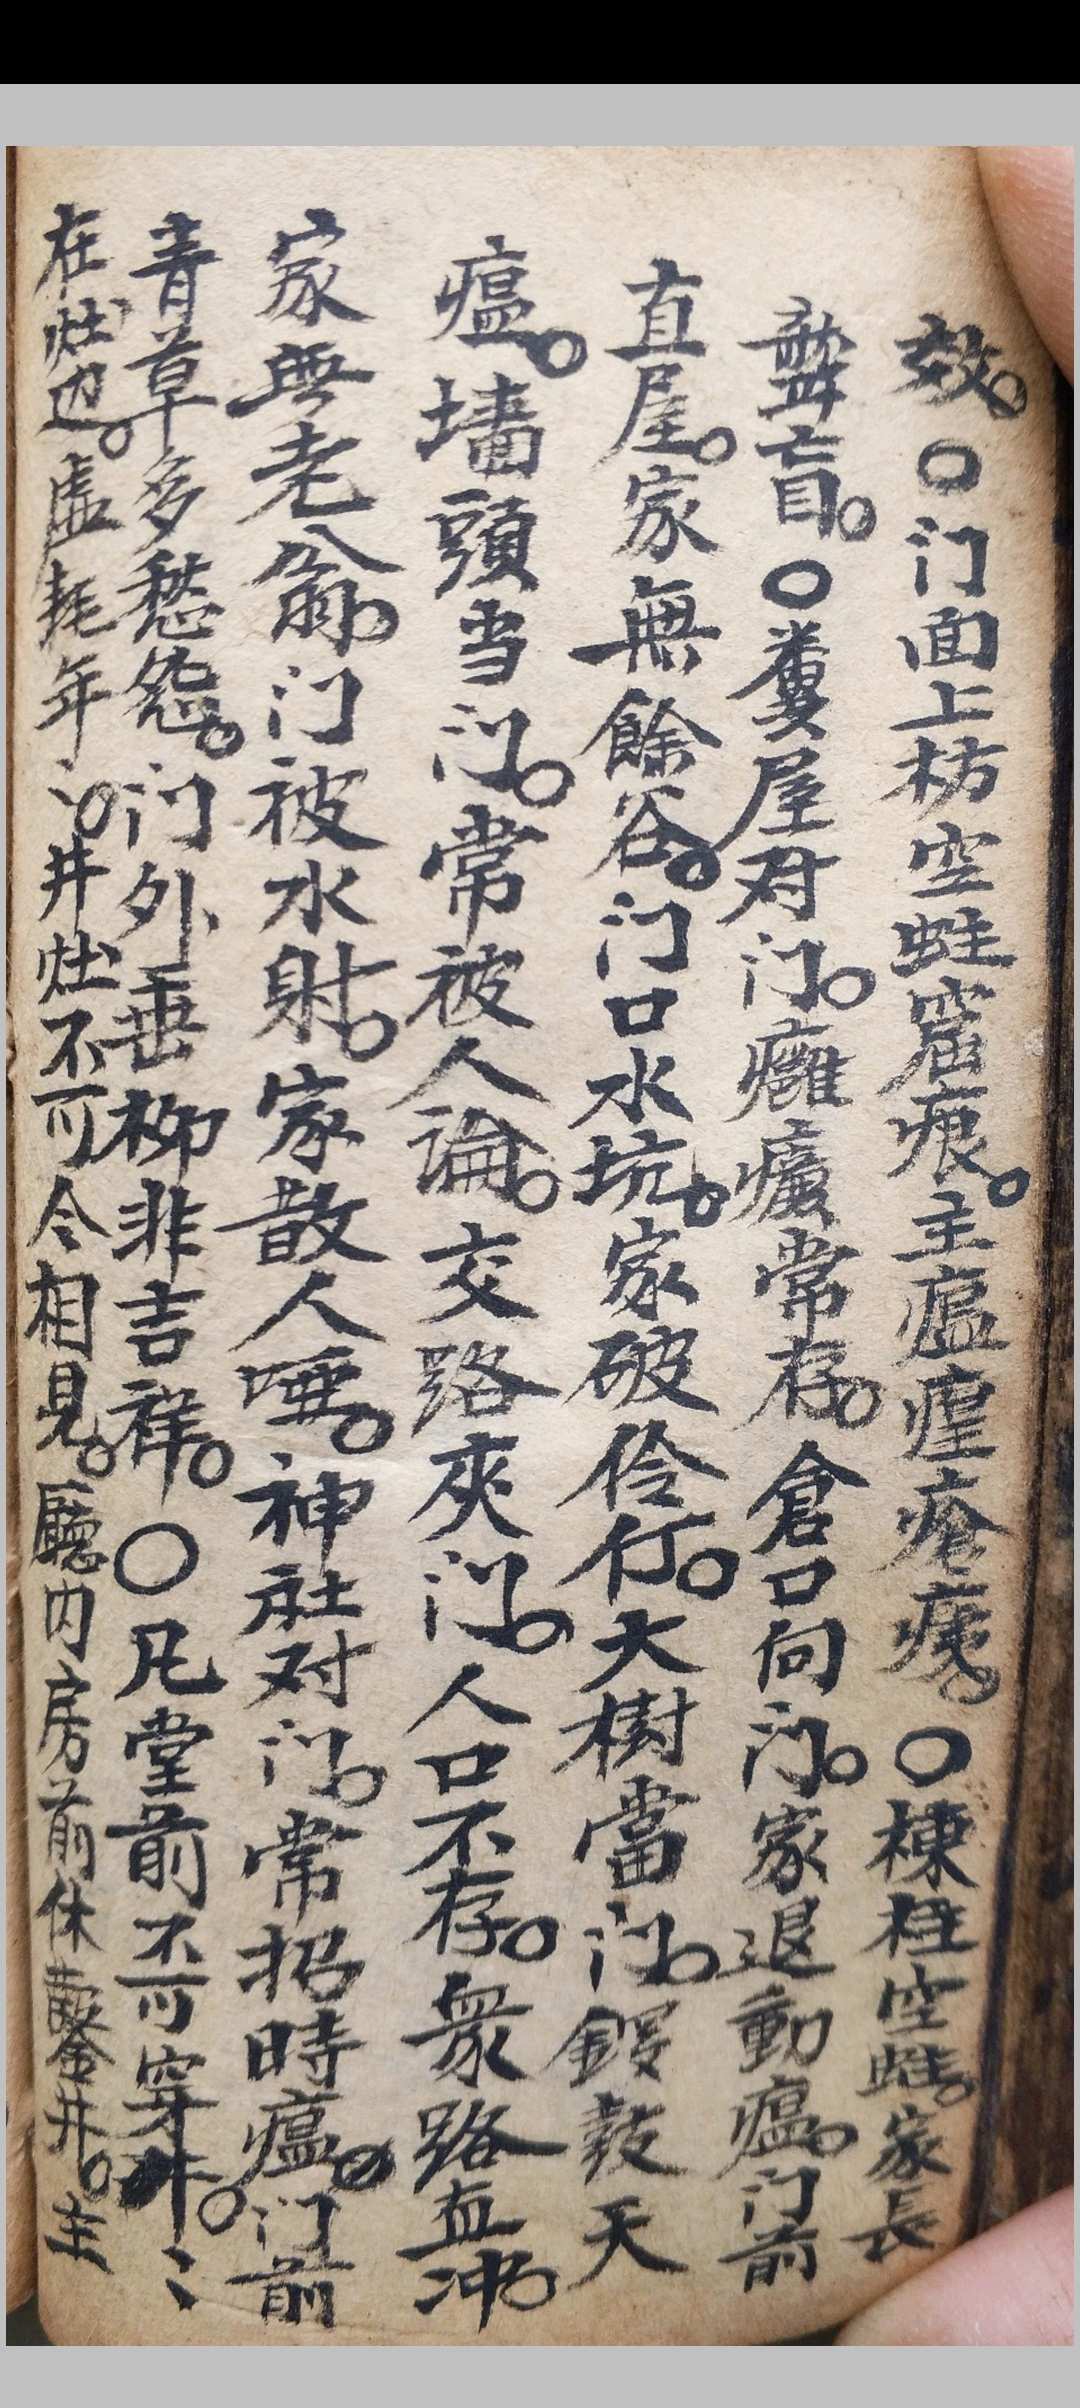 效。○门面上枋空蛀窟痕。主瘟瘟瘡痍。○棟柱空蛀。家長
聾盲。○糞屋对门。癰癘常存。倉口向门。家退動瘟。门前
直屋。家無餘谷。门口水坑。家破伶仃。大樹當门。鼓天
瘟。墙頭当门。常被人論。交路夾门。人口不存。衆路直冲。
家無老翁。门被水射。家散人唖。神社对门。常招時瘟。门前
青草多愁怨。门外垂柳非吉祥。○凡堂前不可穿井。〻
在灶边。虚耗年〻。井灶不可令相見。廳内房前休鑿井。主